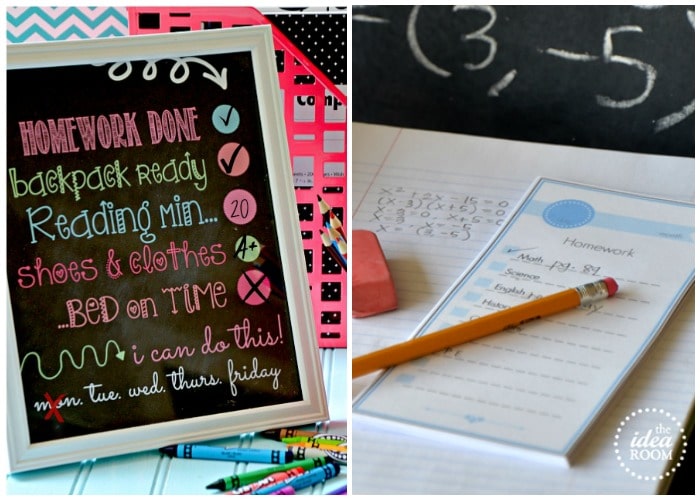 HOMEWORK DONE
backpack Ready
Reading Min... 20
Shoes & Clothes A+
...BED on TIME
i can do this!
mon. tue. wed. thurs. friday
Comp
(3, -5)
x² + 2x - 15 = 0
(x - 3)(x + 5) = 0
x - 3 = 0 x + 5 = 0
x = -5
(3, -5)
Homework
Math pg. 89
Science
English
the
idea
ROOM